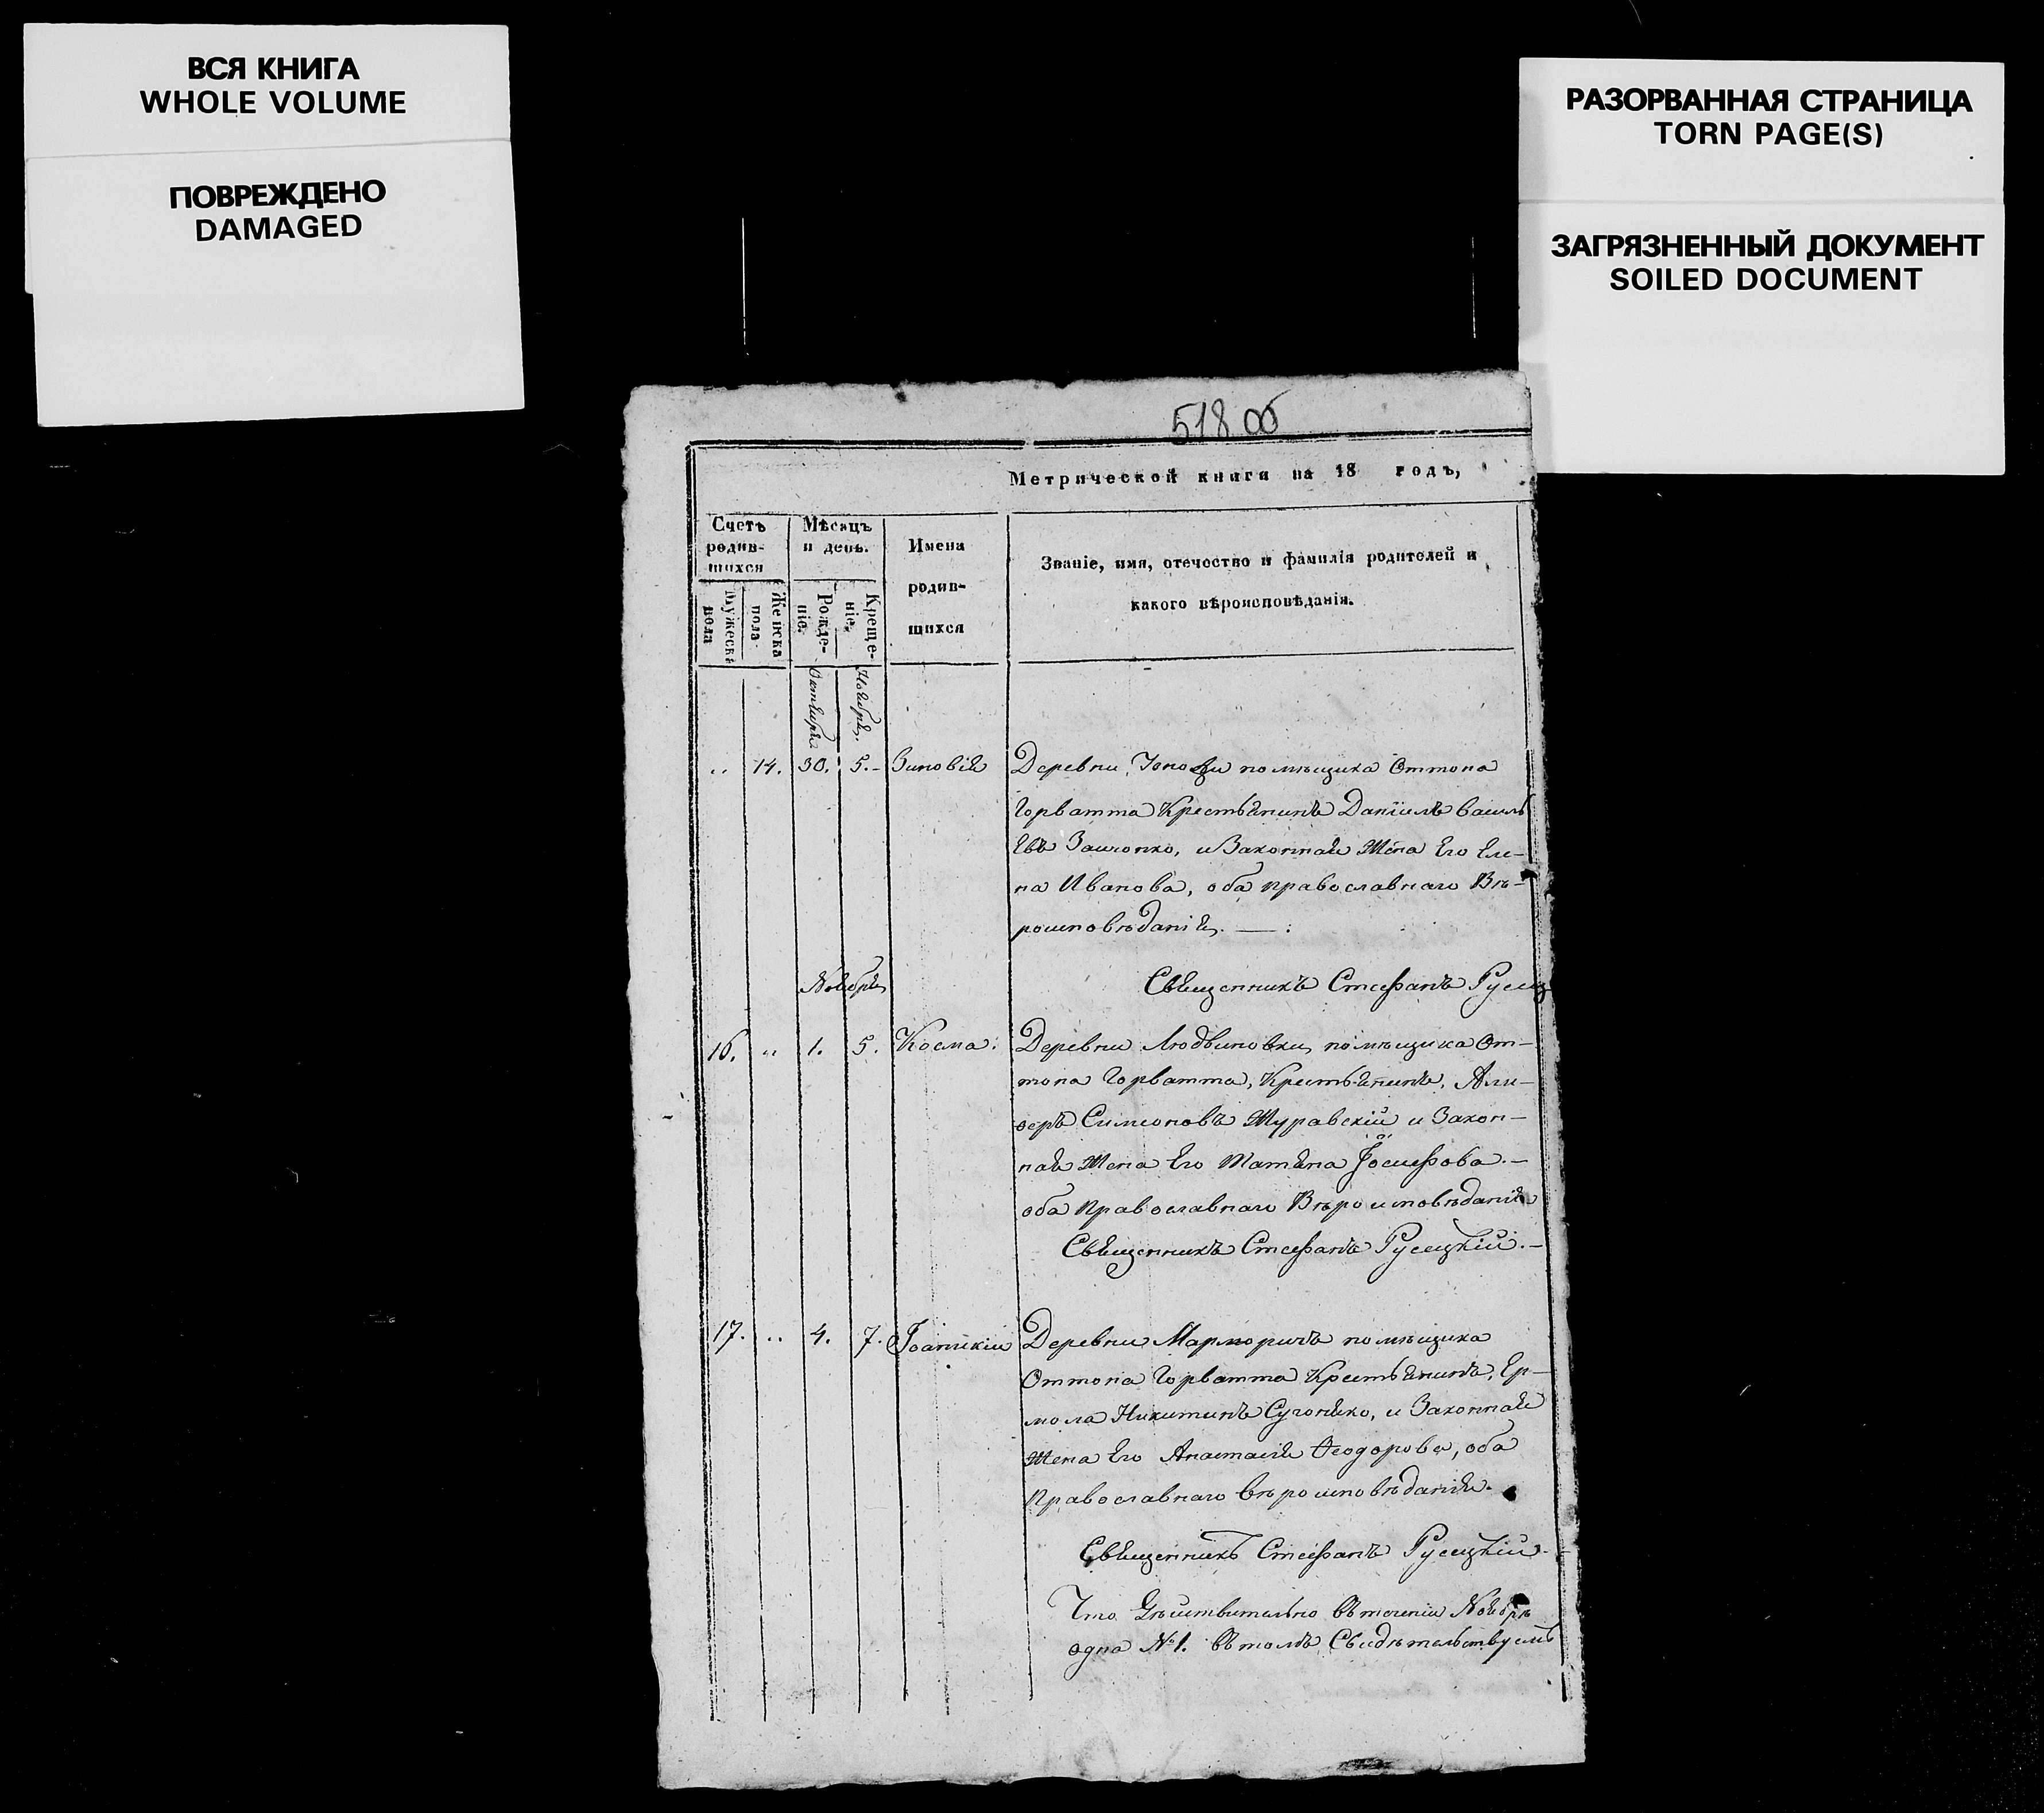 ВСЯ КНИГА
WHOLE VOLUME
ПОВРЕЖДЕНО
DAMAGED
РАЗОРВАННАЯ СТРАНИЦА
TORN PAGE(S)
ЗАГРЯЗНЕННЫЙ ДОКУМЕНТ
SOILED DOCUMENT
518 об
Метрической книги на 18 годъ,
Счетъ родив-шихся
Мѣсяцъ и день.
Имена родив-шихся
Званіе, имя, отечество и фамилія родителей и
какого вѣроисповѣданія.
Мужеска пола
Женска пола
Рожде-ніе.
Креще-ніе.
Октября
Ноября.
14. 30. 5. Зиновія
Деревни помѣщика Оттона
Горватта Крестьянинъ Даніилъ Василь
евъ и Законная Жена Его Еле-
на Иванова, оба православнаго Вѣ-
роисповѣданія.
Священникъ Стефанъ Русец
Ноября
16. 1. 5. Косма.
Деревни Людвиновки помѣщика От-
тона Горватта, Крестьянинъ,
Симеоновъ Журавскій и Закон-
ная Жена Его Татьяна Іосифова.
оба Православнаго Вѣроисповѣданія
Священникъ Стефанъ Русецкій.
17. 4. 7. Іоанникій
Деревни помѣщика
Оттона Горватта Крестьянинъ, Ер-
мола Никитинъ и Законная
Жена Его Анастасія Ѳеодорова, оба
Православнаго вѣроисповѣданія.
Священникъ Стефанъ Русецкій.
Что дѣйствительно въ теченіи Ноября
одна №1. въ томъ Свидѣтельствуемъ